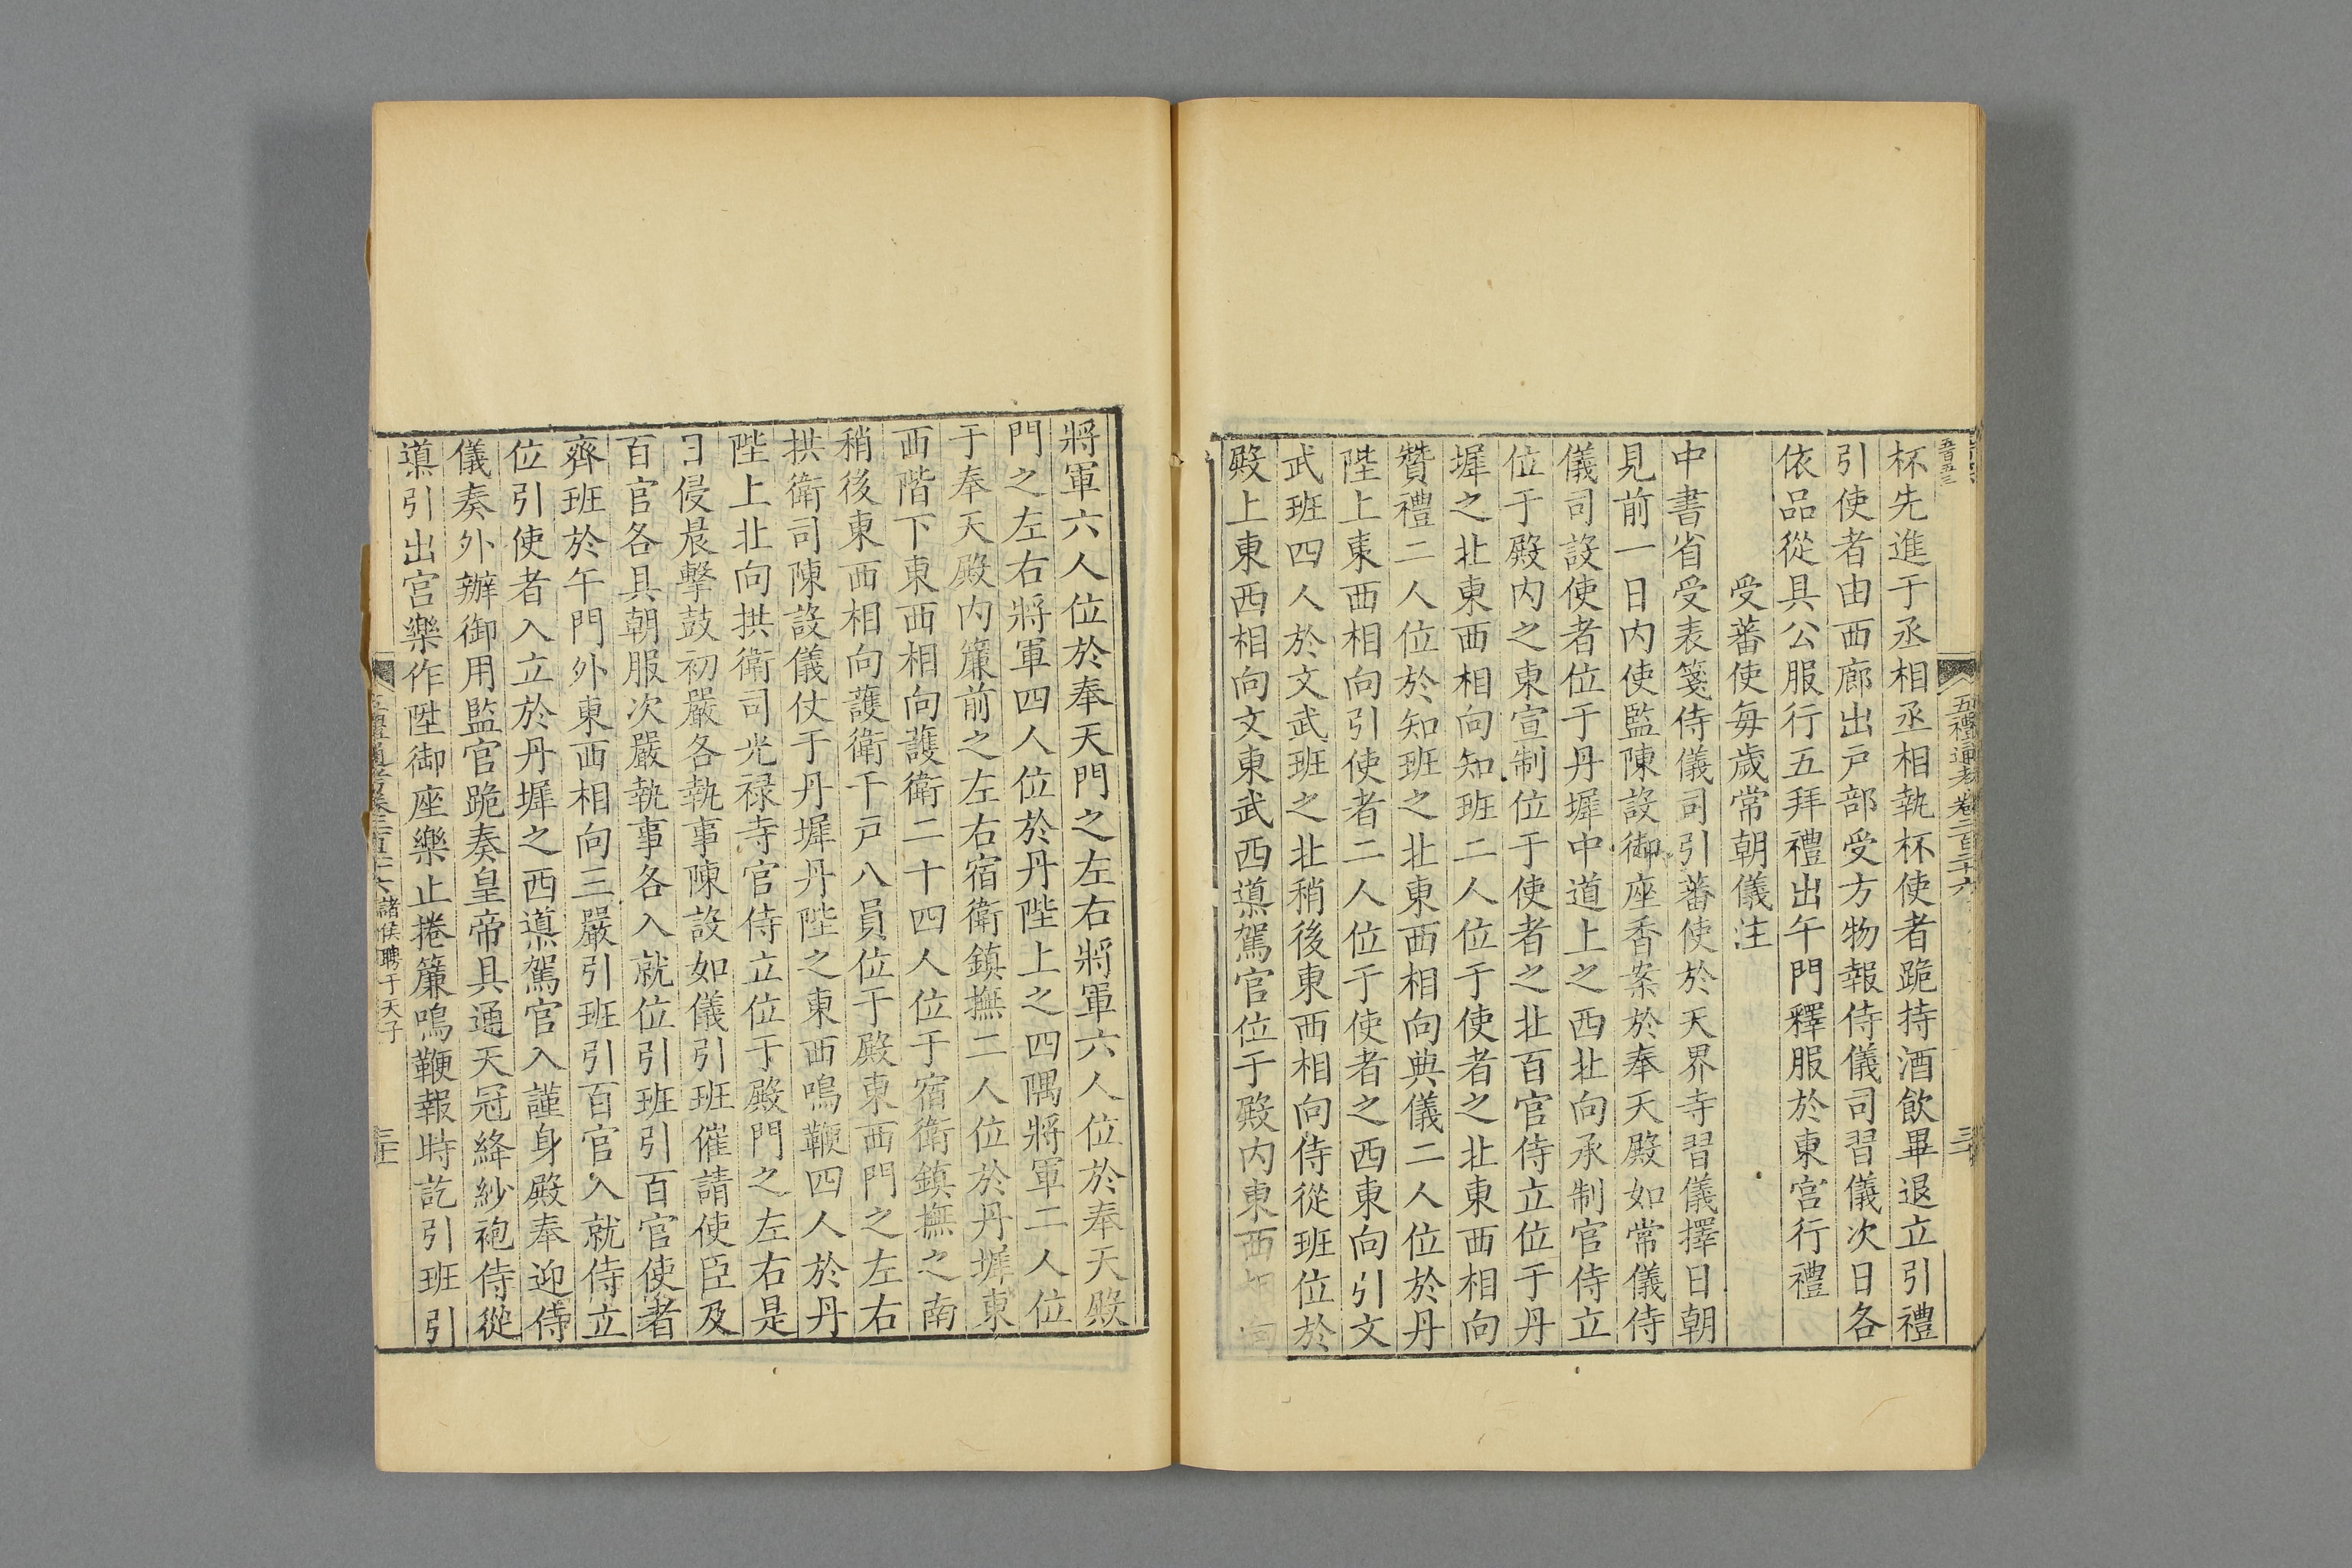 五禮通考卷二百二十六
三十
杯先進于丞相丞相執杯使者跪持酒飲畢退立引禮
引使者由西廊出戶部受方物報侍儀司習儀次日各
依品從具公服行五拜禮出午門釋服於東宮行禮
受蕃使每歲常朝儀注
中書省受表箋侍儀司引蕃使於天界寺習儀擇日朝
見前一日内使監陳設御座香案於奉天殿如常儀侍
儀司設使者位于丹墀中道上之西北向承制官侍立
位于殿内之東宣制位于使者之北百官侍立位于丹
墀之北東西相向知班二人位于使者之北東西相向
贊禮二人位於知班之北東西相向典儀二人位於丹
陛上東西相向引使者二人位于使者之西東向引文
武班四人於文武班之北稍後東西相向侍從班位於
殿上東西相向文東武西導駕官位于殿内東西相向
將軍六人位於奉天門之左右將軍六人位於奉天殿
門之左右將軍四人位於丹陛上之四隅將軍二人位
于奉天殿内簾前之左右宿衛鎮撫二人位於丹墀東
西階下東西相向護衛二十四人位于宿衛鎮撫之南
稍後東西相向護衛千戶八員位于殿東西門之左右
拱衛司陳設儀仗于丹墀丹陛之東西鳴鞭四人於丹
陛上北向拱衛司光祿寺官侍立位于殿門之左右是
日侵晨擊鼓初嚴各執事陳設如儀引班催請使臣及
百官各具朝服次嚴執事各入就位引班引百官使者
齊班於午門外東西相向三嚴引班引百官入就侍立
位引使者入立於丹墀之西導駕官入謹身殿奉迎侍
儀奏外辦御用監官跪奏皇帝具通天冠絳紗袍侍從
導引出宮樂作陞御座樂止捲簾鳴鞭報時訖引班引
諸侯聘于天子